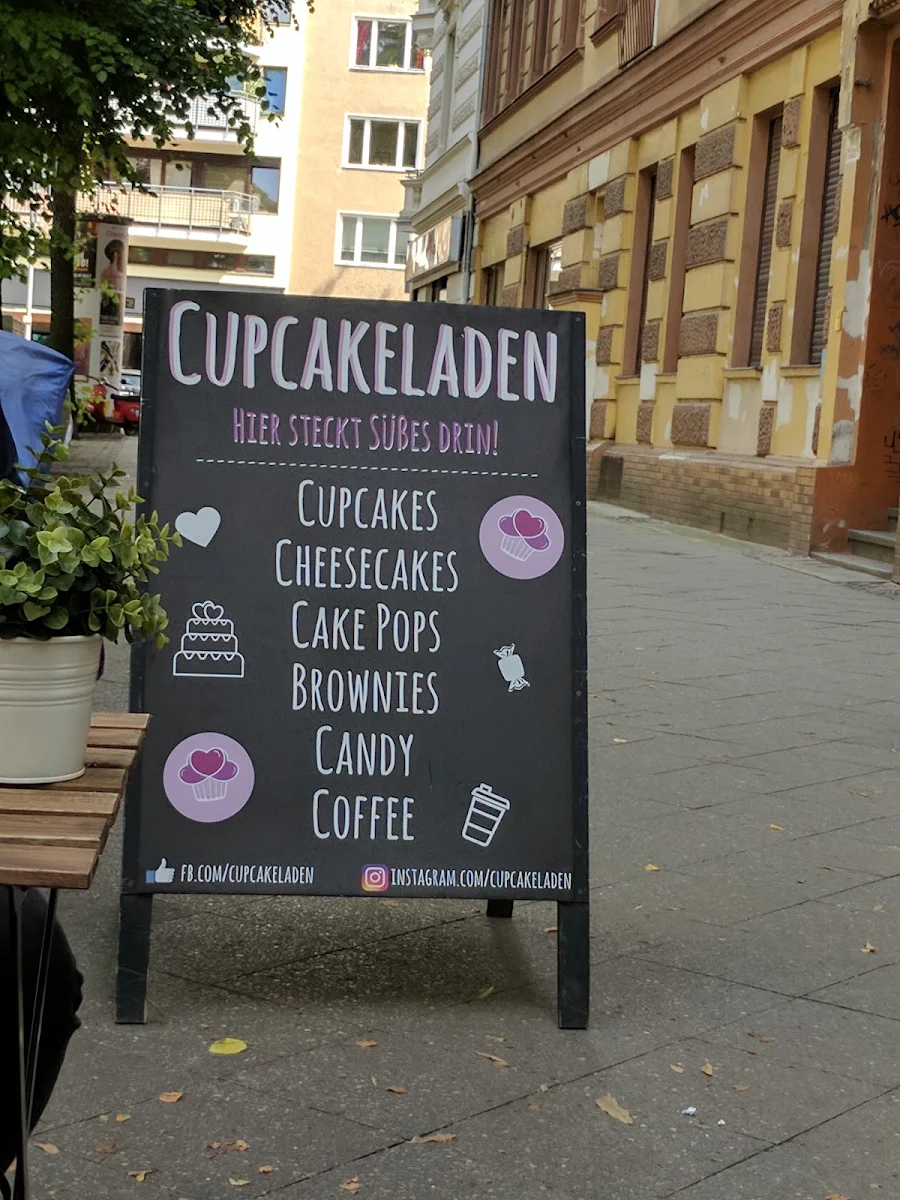 CUPCAKELADEN
HIER STECKT SÜßES DRIN!
CUPCAKES
CHEESECAKES
CAKE POPS
BROWNIES
CANDY
COFFEE
FB.COM/CUPCAKELADEN
INSTAGRAM.COM/CUPCAKELADEN